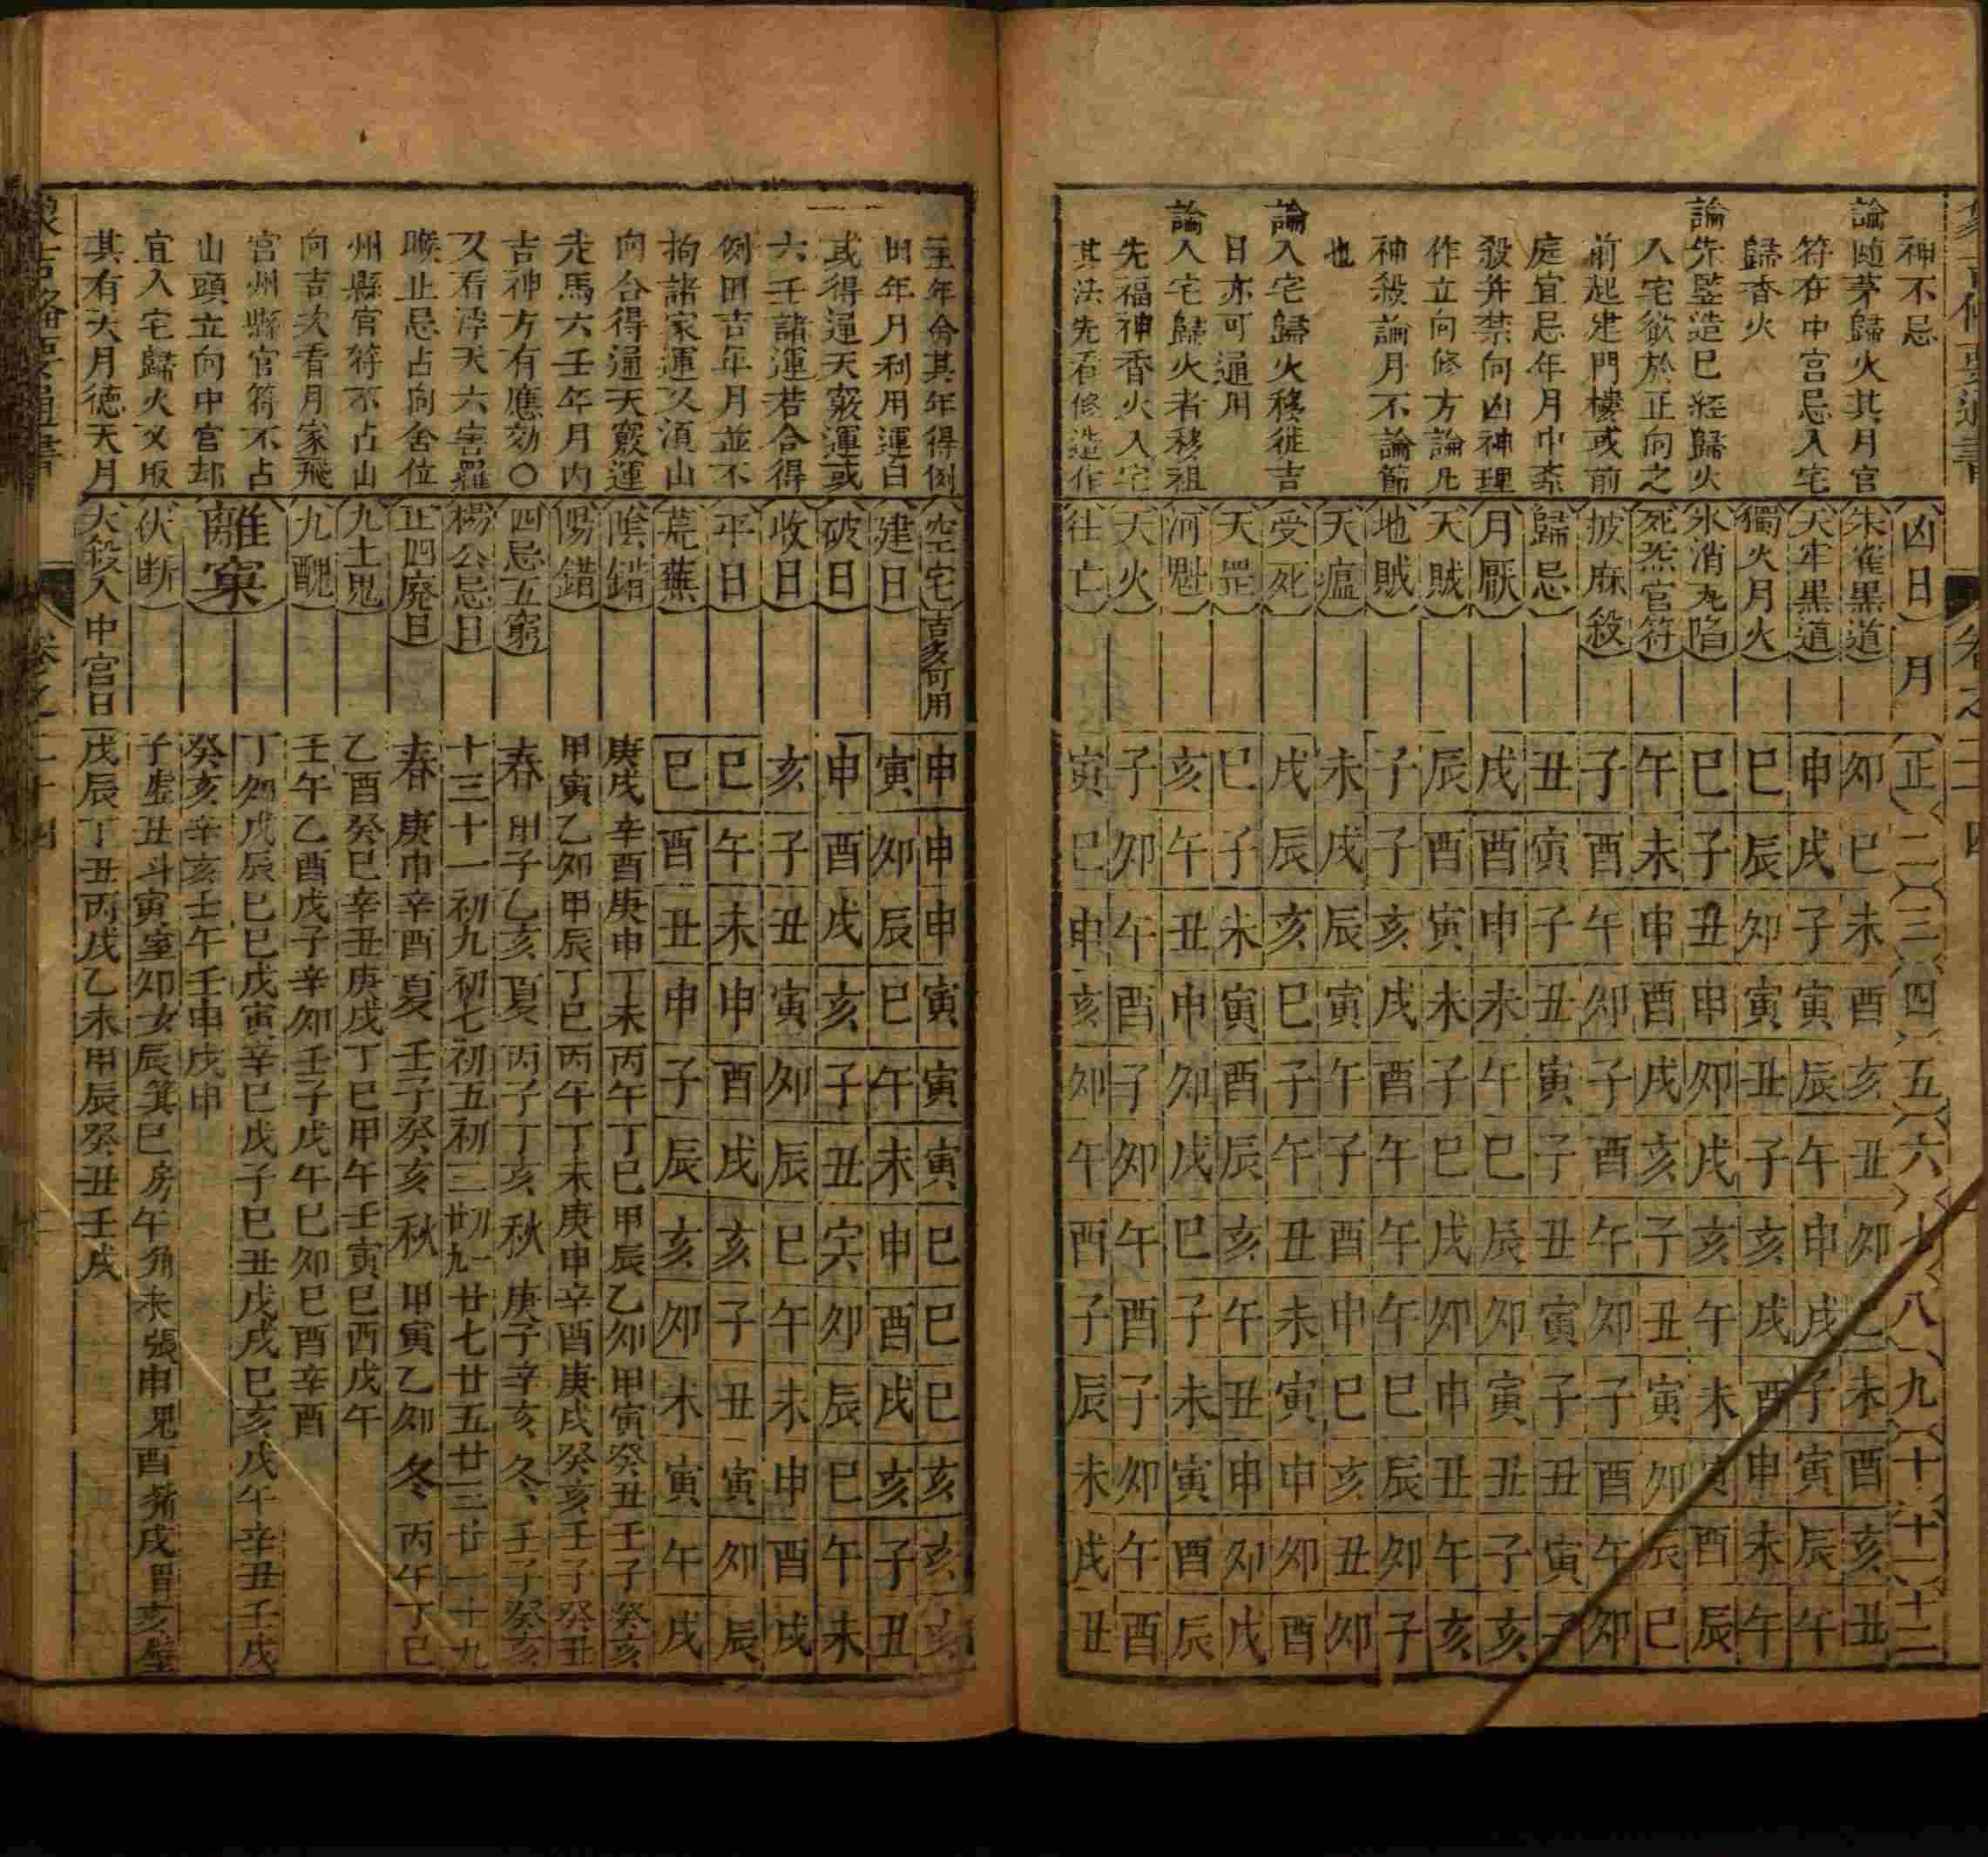 神不忌
論随茅歸火其月官
符在中宮忌入宅
歸香火
論先竪造已經歸火
入宅欲於正向之
前起建門樓或前
庭宜忌年月中紊
殺弁禁向凶神理
作立向修方論凡
神殺論月不論節
也
論入宅歸火移徙吉
日亦可通用
論入宅歸火者移祖
先福神香火入宅
其法先看修造作
凶日 月 正 二 三 四 五 六 七 八 九 十 十一 十二
朱雀黑道 卯巳未酉亥丑卯巳未酉亥丑
天牢黑道 申戌子寅辰午申戌子寅辰午
獨火月火 巳辰卯寅丑子亥戌酉申未午
氷消瓦陷 巳子丑申卯戌亥午未寅酉辰
死炁官符 午未申酉戌亥子丑寅卯辰巳
披麻殺 子酉午卯子酉午卯子酉午卯
歸忌 丑寅子丑寅子丑寅子丑寅子
月厭 戌酉申未午巳辰卯寅丑子亥
天賊 辰酉寅未子巳戌卯申丑午亥
地賊 子子亥戌酉午午午巳辰卯子
天瘟 未戌辰寅午子酉申巳亥丑卯
受死 戌辰亥巳子午丑未寅申卯酉
天罡 巳子未寅酉辰亥午丑申卯戌
河魁 亥午丑申卯戌巳子未寅酉辰
天火 子卯午酉子卯午酉子卯午酉
往亡 寅巳申亥卯午酉子辰未戌丑
主年命其年得例
田年月利用運白
或得運天竅運或
六壬諸運若合得
例田吉年月並不
拘諸家運又湏山
向合得通天竅運
走馬六壬年月内
吉神方有應効○
又看浮天六害羅
睺止忌占向舍位
州縣官符不占山
向吉次看月家飛
宮州縣官符不占
山頭立向中宮却
宜入宅歸火又取
其有天月德天月
空宅 吉多可用 申申申寅寅寅巳巳巳亥亥亥
建日 寅卯辰巳午未申酉戌亥子丑
破日 申酉戌亥子丑寅卯辰巳午未
收日 亥子丑寅卯辰巳午未申酉戌
平日 巳午未申酉戌亥子丑寅卯辰
荒蕪 巳酉丑申子辰亥卯未寅午戌
陰錯 庚戌辛酉庚申丁未丙午丁巳甲辰乙卯甲寅癸丑壬子癸亥
陽錯 甲寅乙卯甲辰丁巳丙午丁未庚申辛酉庚戌癸亥壬子癸丑
四忌五窮 春 甲子乙亥 夏 丙子丁亥 秋 庚子辛亥 冬 壬子癸亥
楊公忌日 十三 十一 初九 初七 初五 初三 初一廿九 廿七 廿五 廿三 廿一 十九
正四廢日 春 庚申辛酉 夏 壬子癸亥 秋 甲寅乙卯 冬 丙午丁巳
九土鬼 乙酉癸巳辛丑庚戌丁巳甲午壬寅己酉戊午
九醜 壬午乙酉戊子辛卯壬子戊午己卯己酉辛酉
離窠 丁卯戊辰己巳戊寅辛巳戊子己丑戊戌己亥戊午辛丑壬戌
癸亥辛亥壬午壬申戊申
伏断 子虛丑斗寅室卯女辰箕巳房午角未張申鬼酉觜戌胃亥壁
大殺入中宮日 戊辰丁丑丙戌乙未甲辰癸丑壬戌